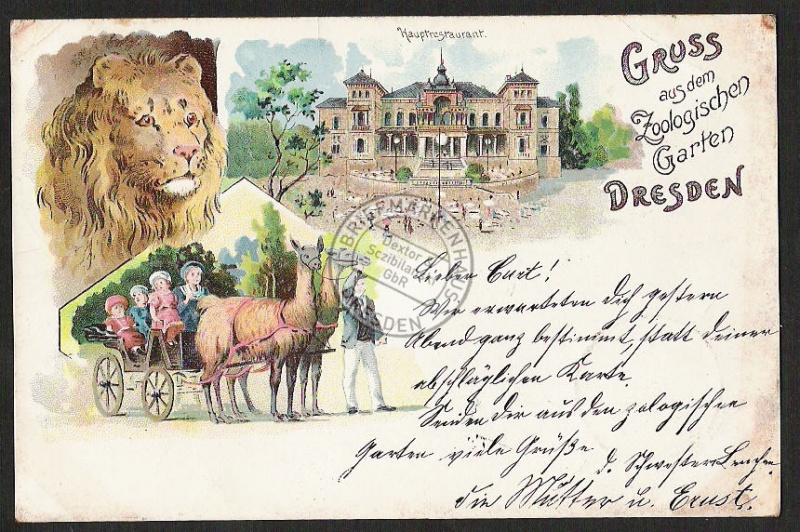 Hauptrestaurant.
GRUSS
aus dem
Zoologischen
Garten
DRESDEN
BRIEFMARKENHAUS
Dextor
Sczibilan
GbR
DRESDEN
Lieber Curt!
Wir erwarteten dich gestern
Abend ganz bestimmt, statt deiner
abschläglichen Karte.
Senden dir aus den zologischen
Garten viele Grüße
d. Schwester Lenchen
die Mutter u. Ernst.